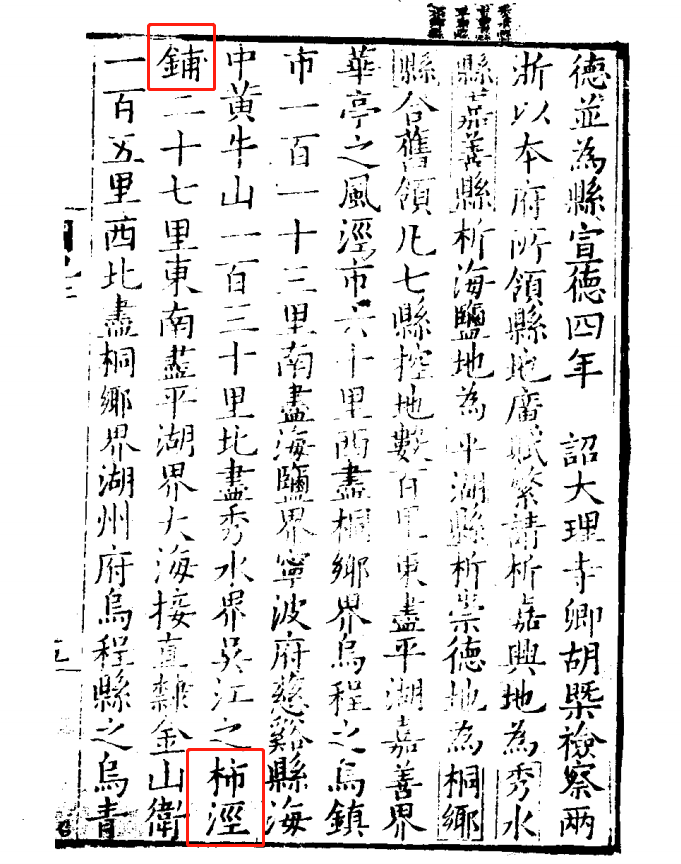 德並為縣宣德四年 詔大理寺卿胡槩檢察兩
浙以本府所領縣地廣賦繁請析嘉興地為秀水
縣嘉善縣析海鹽地為平湖縣析崇德地為桐鄉
縣合舊領凡七縣控地數百里東盡平湖嘉善界
華亭之風涇市六十里西盡桐鄉界烏程之烏鎮
市一百一十三里南盡海鹽界寧波府慈谿縣海
中黄牛山一百三十里北盡秀水界吳江之柿涇
鋪二十七里東南盡平湖界大海接直隸金山衛
一百五里西北盡桐鄉界湖州府烏程縣之烏青